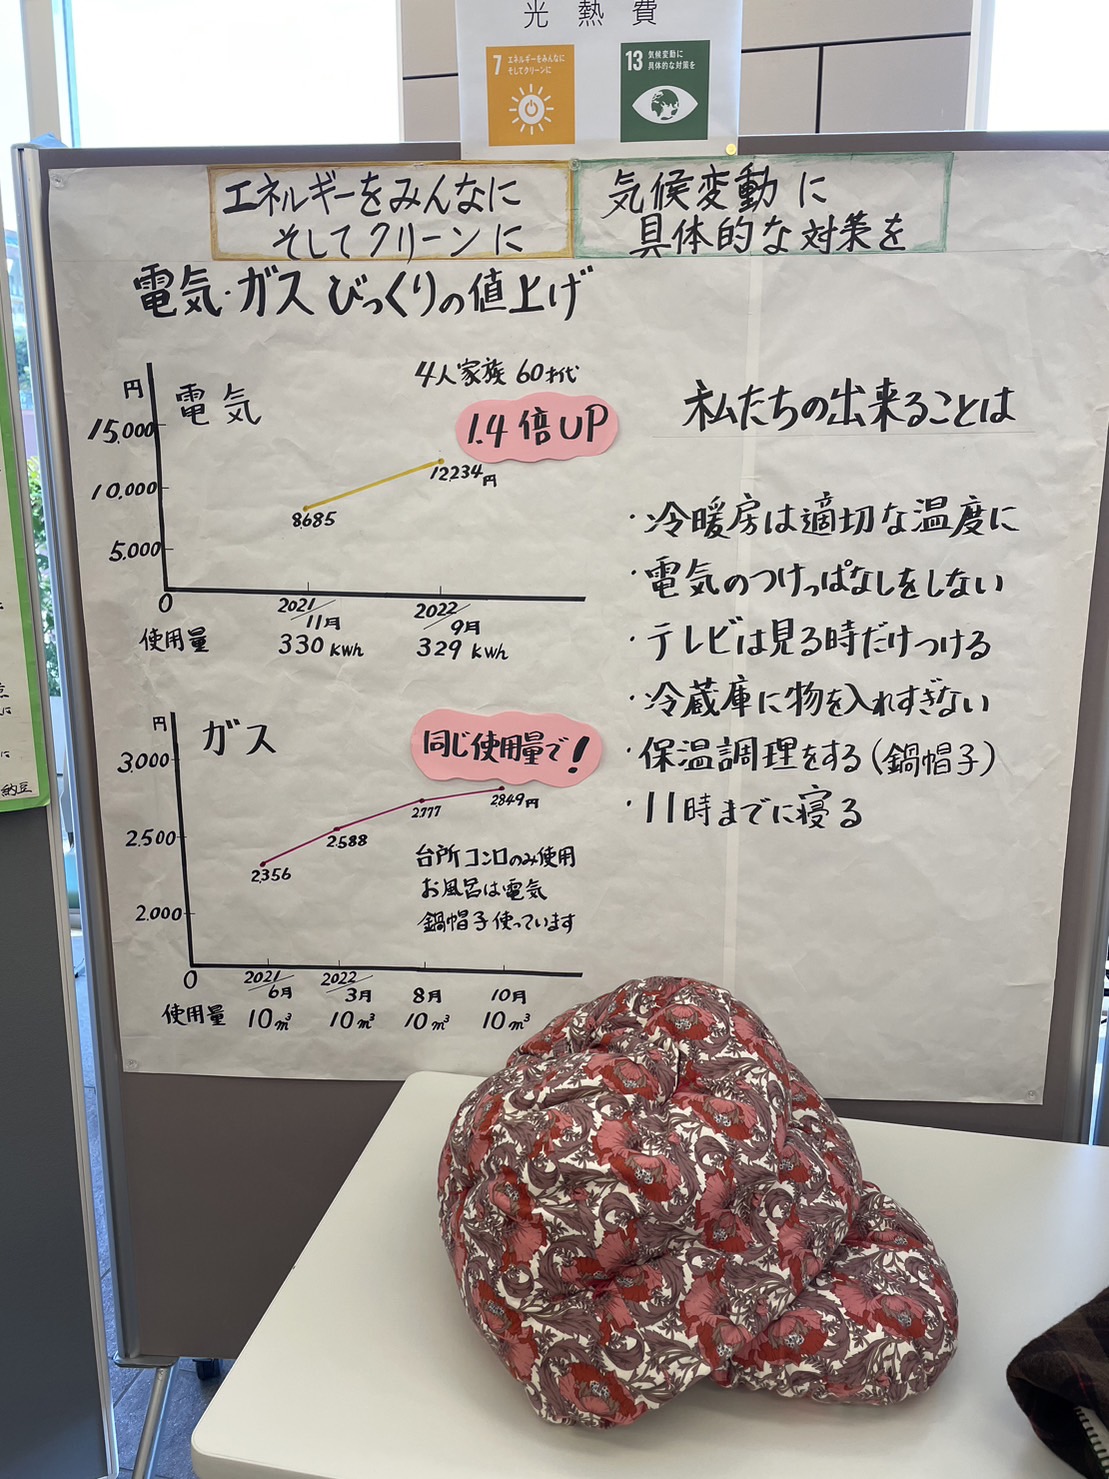 光熱費
7 エネルギーをみんなに
そしてクリーンに
13 気候変動に
具体的な対策を
エネルギーをみんなに
そしてクリーンに
気候変動に
具体的な対策を
電気・ガスびっくりの値上げ
円
電気
4人家族 60才代
1.4倍UP
15,000
10,000
5,000
0
8685
12234円
2021/11月
2022/9月
使用量
330 kwh
329 kwh
円
ガス
同じ使用量で!
3,000
2,500
2,000
0
2356
2588
2777
2849円
台所コンロのみ使用
お風呂は電気
鍋帽子使っています
2021/6月
2022/3月
8月
10月
使用量
10m³
10m³
10m³
10m³
私たちの出来ることは
・冷暖房は適切な温度に
・電気のつけっぱなしをしない
・テレビは見る時だけつける
・冷蔵庫に物を入れすぎない
・保温調理をする(鍋帽子)
・11時までに寝る
納豆